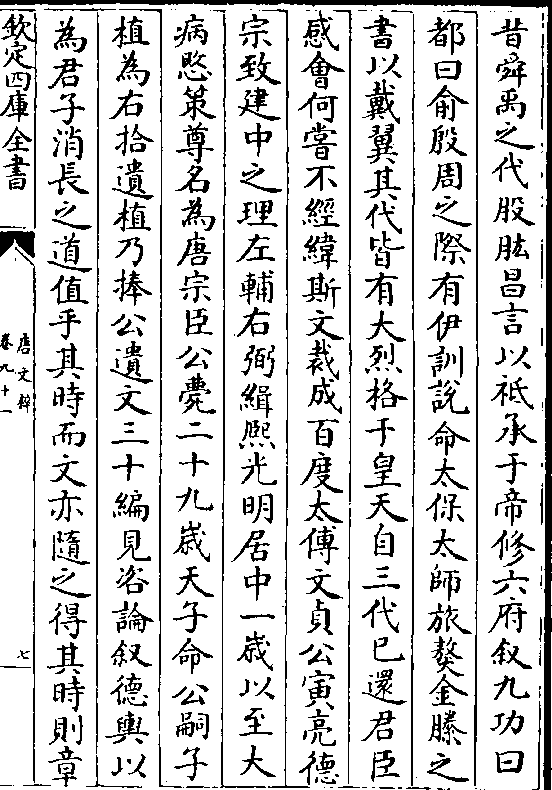 昔舜禹之代股肱昌言以祗承于帝修六府叙九功曰
都曰俞殷周之際有伊訓說命太保太師旅獒金縢之
書以戴翼其代皆有大烈格于皇天自三代已還君臣
感會何嘗不經緯斯文裁成百度太傅文貞公寅亮德
宗致建中之理左輔右弼緝熙光明居中一歲以至大
病愍策尊名為唐宗臣公薨二十九歲天子命公嗣子
植為右拾遺植乃捧公遺文三十編見咨論叙德輿以
為君子消長之道值乎其時而文亦隨之得其時則章
欽定四庫全書
唐文粹
卷九十一
七